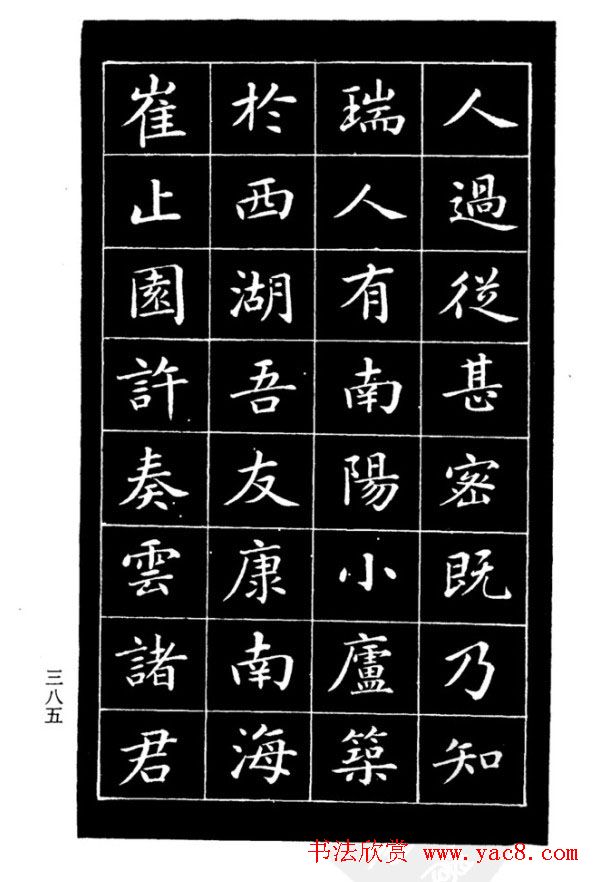 人過從甚密既乃知
瑞人有南陽小廬築
於西湖吾友康南海
崔止園許奏雲諸君
三八五
书法欣赏 www.yac8.com